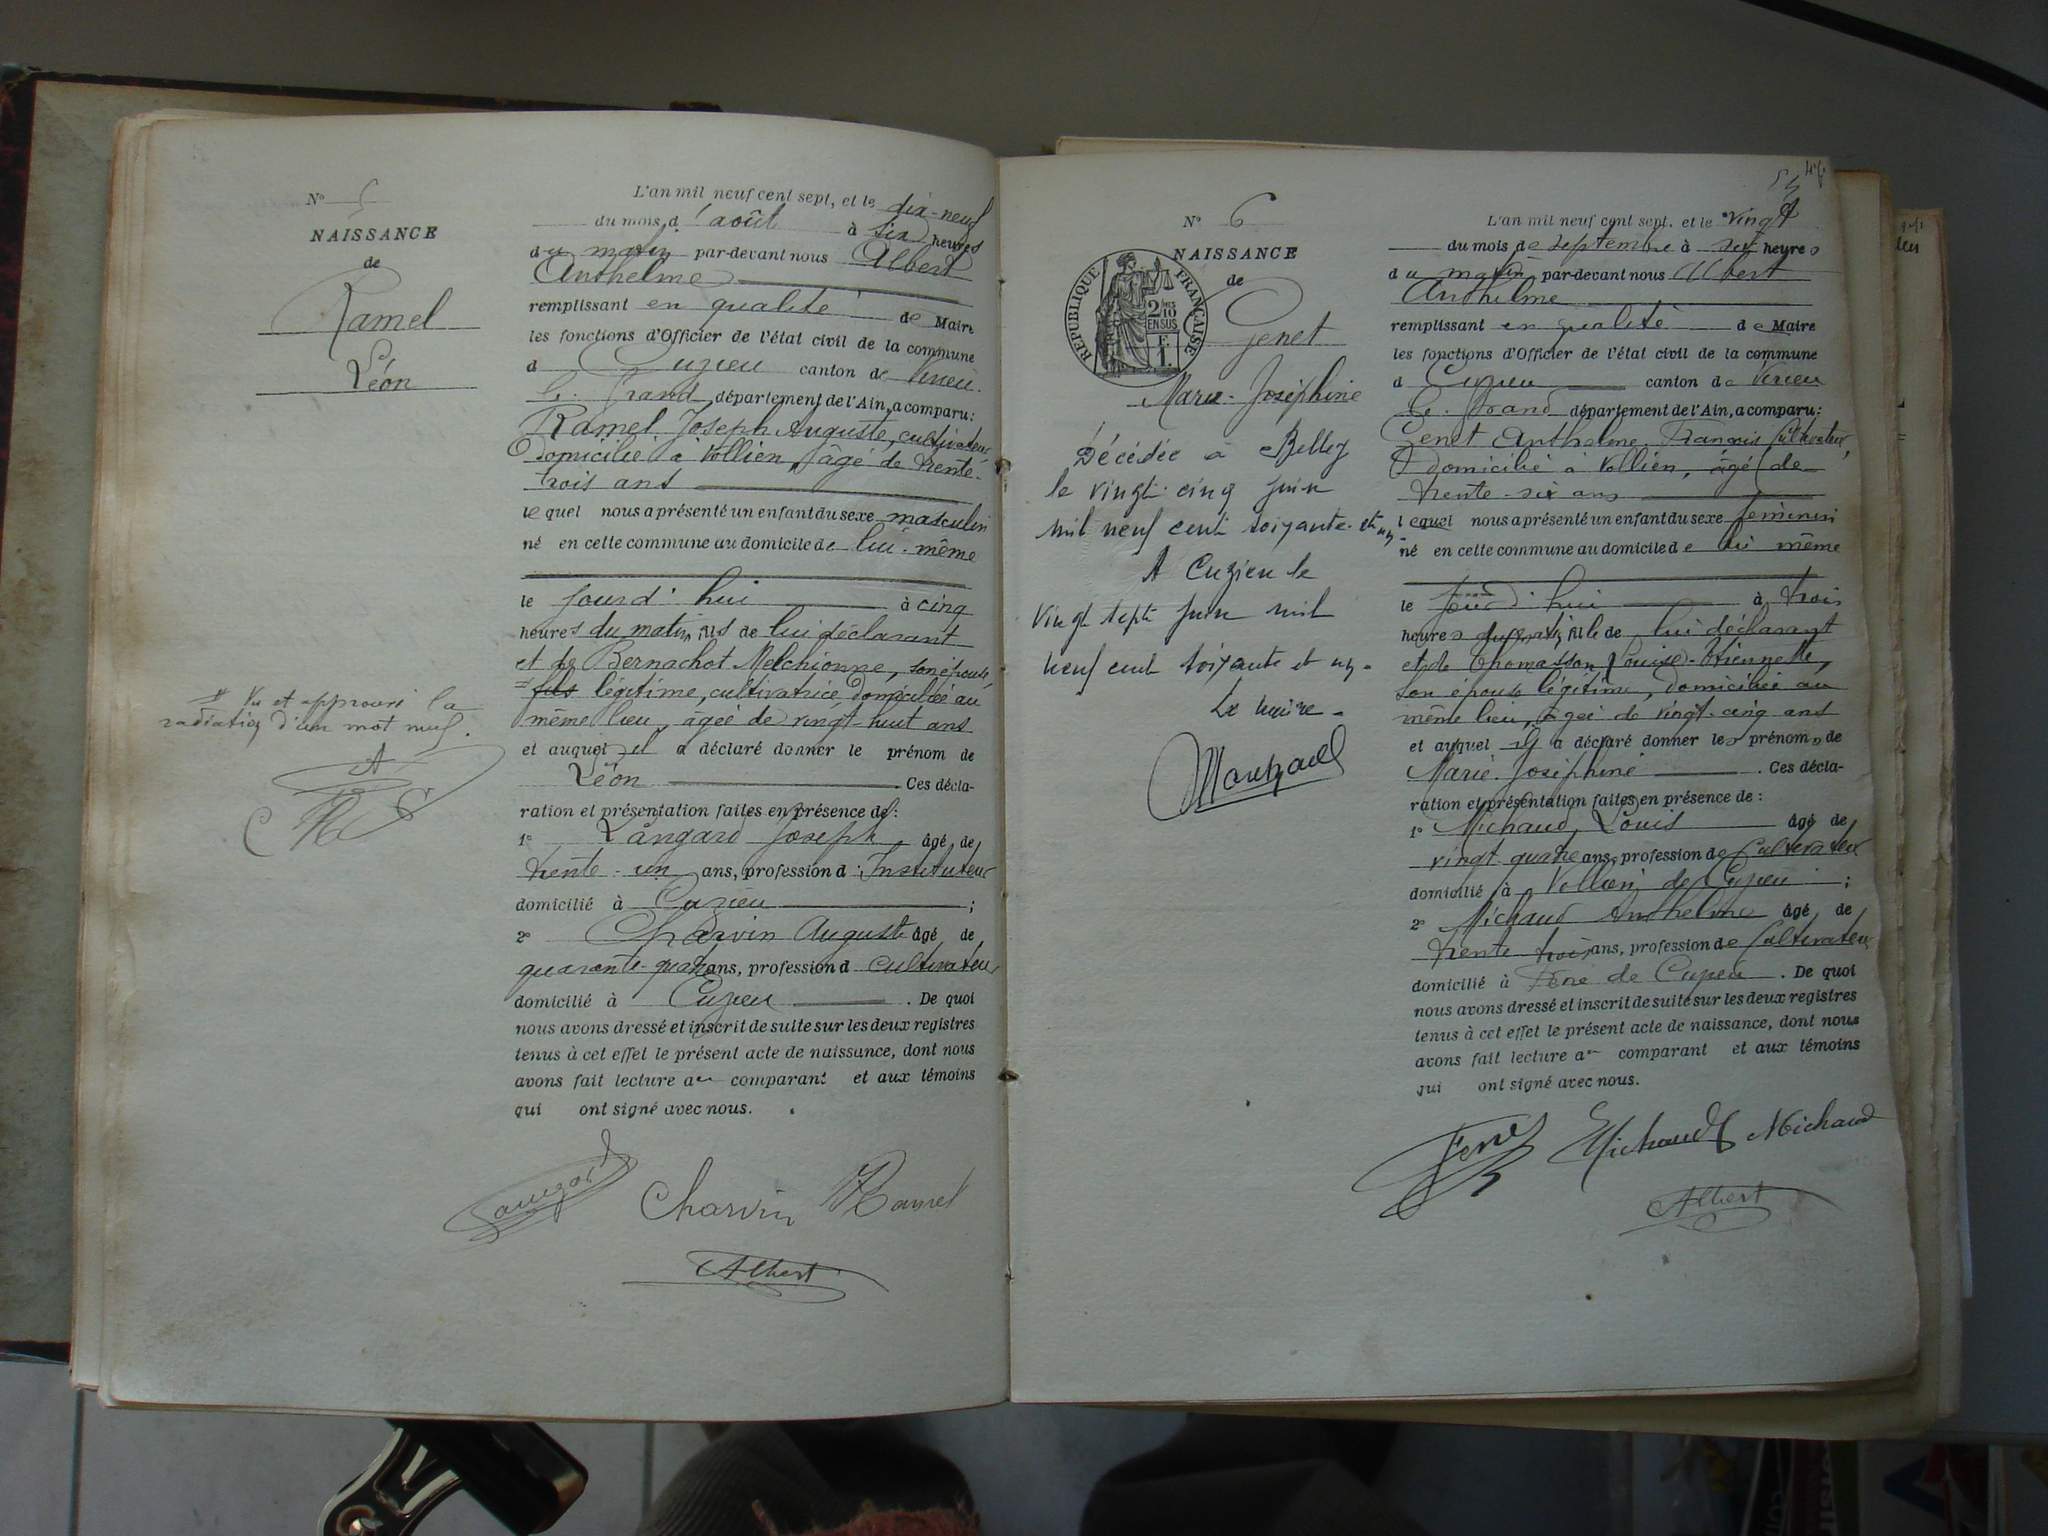 N° 5
NAISSANCE
de
Ramel
Léon
L'an mil neuf cent sept, et le dix-neuf
du mois d'août à six heures
du matin par-devant nous Albert
Anthelme
remplissant en qualité de Maire
les fonctions d'Officier de l'état civil de la commune
d Cuzieu canton de Virieu
le Grand, département de l'Ain, a comparu:
Ramel Joseph Auguste, cultivateur
domicilié à Vollien, âgé de trente-
trois ans
lequel nous a présenté un enfant du sexe masculin
né en cette commune au domicile de lui-même
le jourd'hui à cinq
heures du matin, fils de lui déclarant
et de Bernachot Melchionne, son épouse
fils légitime, cultivatrice domiciliée au
même lieu, âgée de vingt-huit ans
et auquel il a déclaré donner le prénom de
Léon Ces décla-
ration et présentation faites en présence de:
1° Langard Joseph âgé de
trente-un ans, profession d'Instituteur
domicilié à Cuzieu ;
2° Charvin Auguste âgé de
quarante-quatre ans, profession d cultivateur
domicilié à Cuzieu . De quoi
nous avons dressé et inscrit de suite sur les deux registres
tenus à cet effet le présent acte de naissance, dont nous
avons fait lecture au comparant et aux témoins
qui ont signé avec nous.
Vu et approuvé la
radiation d'un mot nul.
Charvin Ramel
Albert
N° 6
NAISSANCE
de
Genet
Marie-Joséphine
RÉPUBLIQUE FRANÇAISE
2/10
EN SUS
Décédée à Belley
le vingt-cinq juin
mil neuf cent soixante-et-un.
A Cuzieu le
vingt sept juin mil
neuf cent soixante et un.
Le maire
L'an mil neuf cent sept. et le vingt
du mois de septembre à sept heures
du matin par-devant nous Albert
Anthelme
remplissant en qualité de Maire
les fonctions d'Officier de l'état civil de la commune
d Cuzieu canton de Virieu
le Grand département de l'Ain, a comparu:
Genet Anthelme François Cultivateur,
domicilié à Vollien, âgé de
trente-six ans
lequel nous a présenté un enfant du sexe féminin
né en cette commune au domicile de lui même
le jourd'hui à trois
heures du matin fille de lui déclarant
et de Thomasson Louise-Etiennette,
son épouse légitime, domiciliée au
même lieu, âgée de vingt-cinq ans
et auquel il a déclaré donner les prénoms de
Marie-Joséphine . Ces décla-
ration et présentation faites en présence de:
1° Michaud, Louis âgé de
vingt-quatre ans, profession de Cultivateur
domicilié à Vollien de Cuzieu ;
2° Michaud Anthelme âgé de
trente trois ans, profession de Cultivateur
domicilié à de Cuzieu . De quoi
nous avons dressé et inscrit de suite sur les deux registres
tenus à cet effet le présent acte de naissance, dont nous
avons fait lecture au comparant et aux témoins
qui ont signé avec nous.
Genet Michaud Michaud
Albert